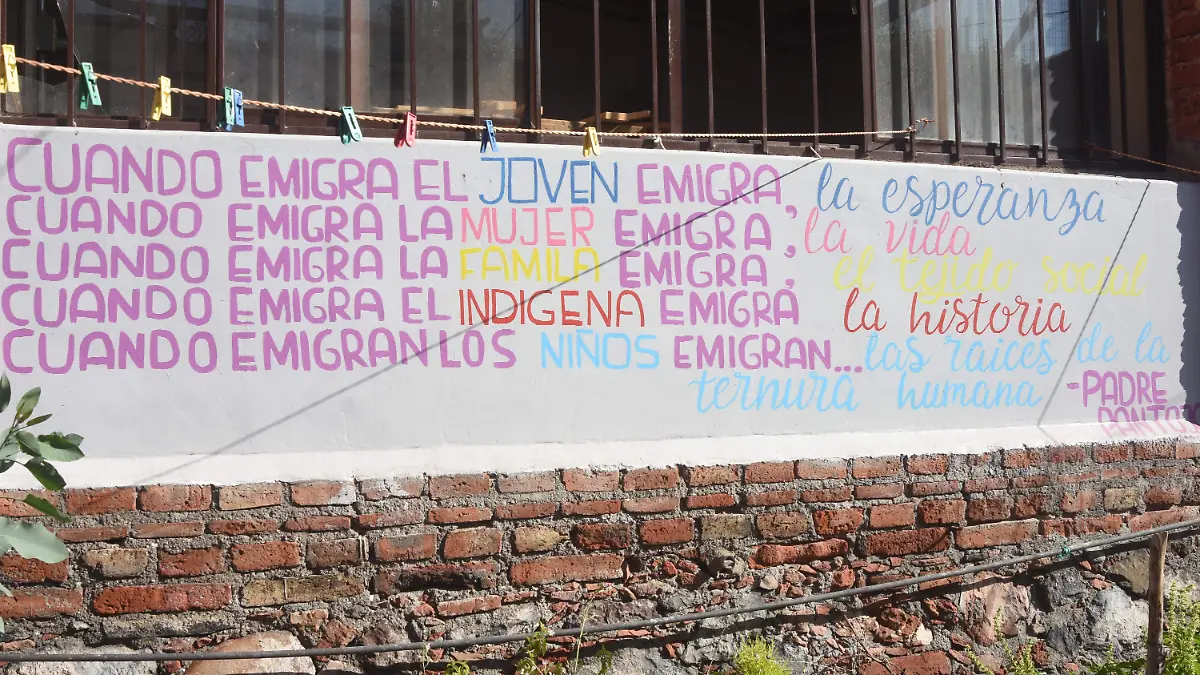 CUANDO EMIGRA EL JOVEN EMIGRA, la esperanza
CUANDO EMIGRA LA MUJER EMIGRA, la vida
CUANDO EMIGRA LA FAMILA EMIGRA, el tejido social
CUANDO EMIGRA EL INDIGENA EMIGRA la historia
CUANDO EMIGRAN LOS NIÑOS EMIGRAN... las raices de la
ternura humana -PADRE